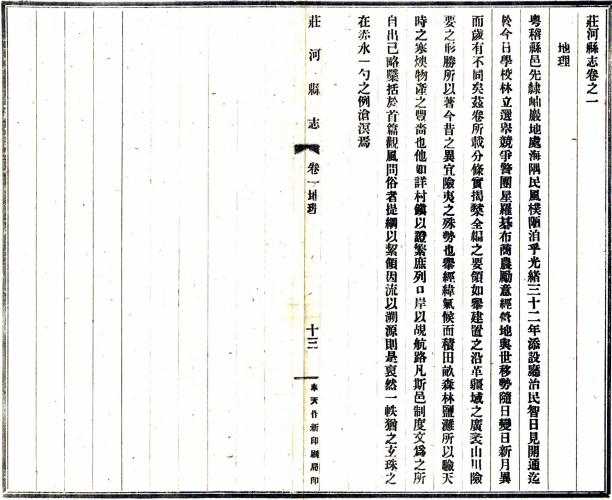 莊河縣志卷之一
地理
粤稽縣邑先隸岫巖地處海隅民風樸陋洎乎光緒三十二年添設廳治民智日見開通迄
於今日學校林立選舉競爭警團星羅碁布商農勵意經營地與世移勢隨日變日新月異
而歲有不同矣茲卷所載分條實揭櫫全編之要領如舉建置之沿革疆域之廣袤山川險
要之形勝所以著今昔之異宜險夷之殊勢也舉經緯氣候而積田畝森林鹽灘所以驗天
時之寒燠物產之豐嗇也他如詳村鎮以證繁庶列口岸以覘航路凡斯邑制度文為之所
自出已略檃括於首篇觀風問俗者提綱以絜領因流以溯源則是裒然一帙猶之玄珠之
在赤水一勺之例滄溟焉
莊河縣志
卷一地理
十三
奉天作新印刷局印